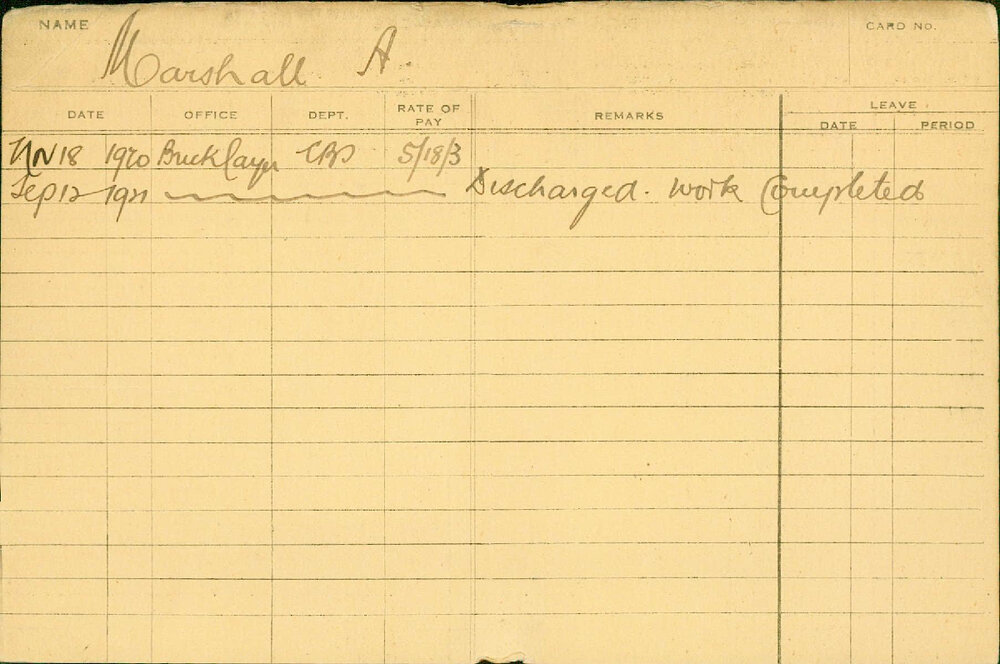 NAME
CARD NO.
Marshall A.
DATE OFFICE DEPT. RATE OF PAY REMARKS LEAVE
DATE PERIOD
Nov 18 1920 Bricklayer 5/18/3
Sep 12 1921 Discharged. Work Completed